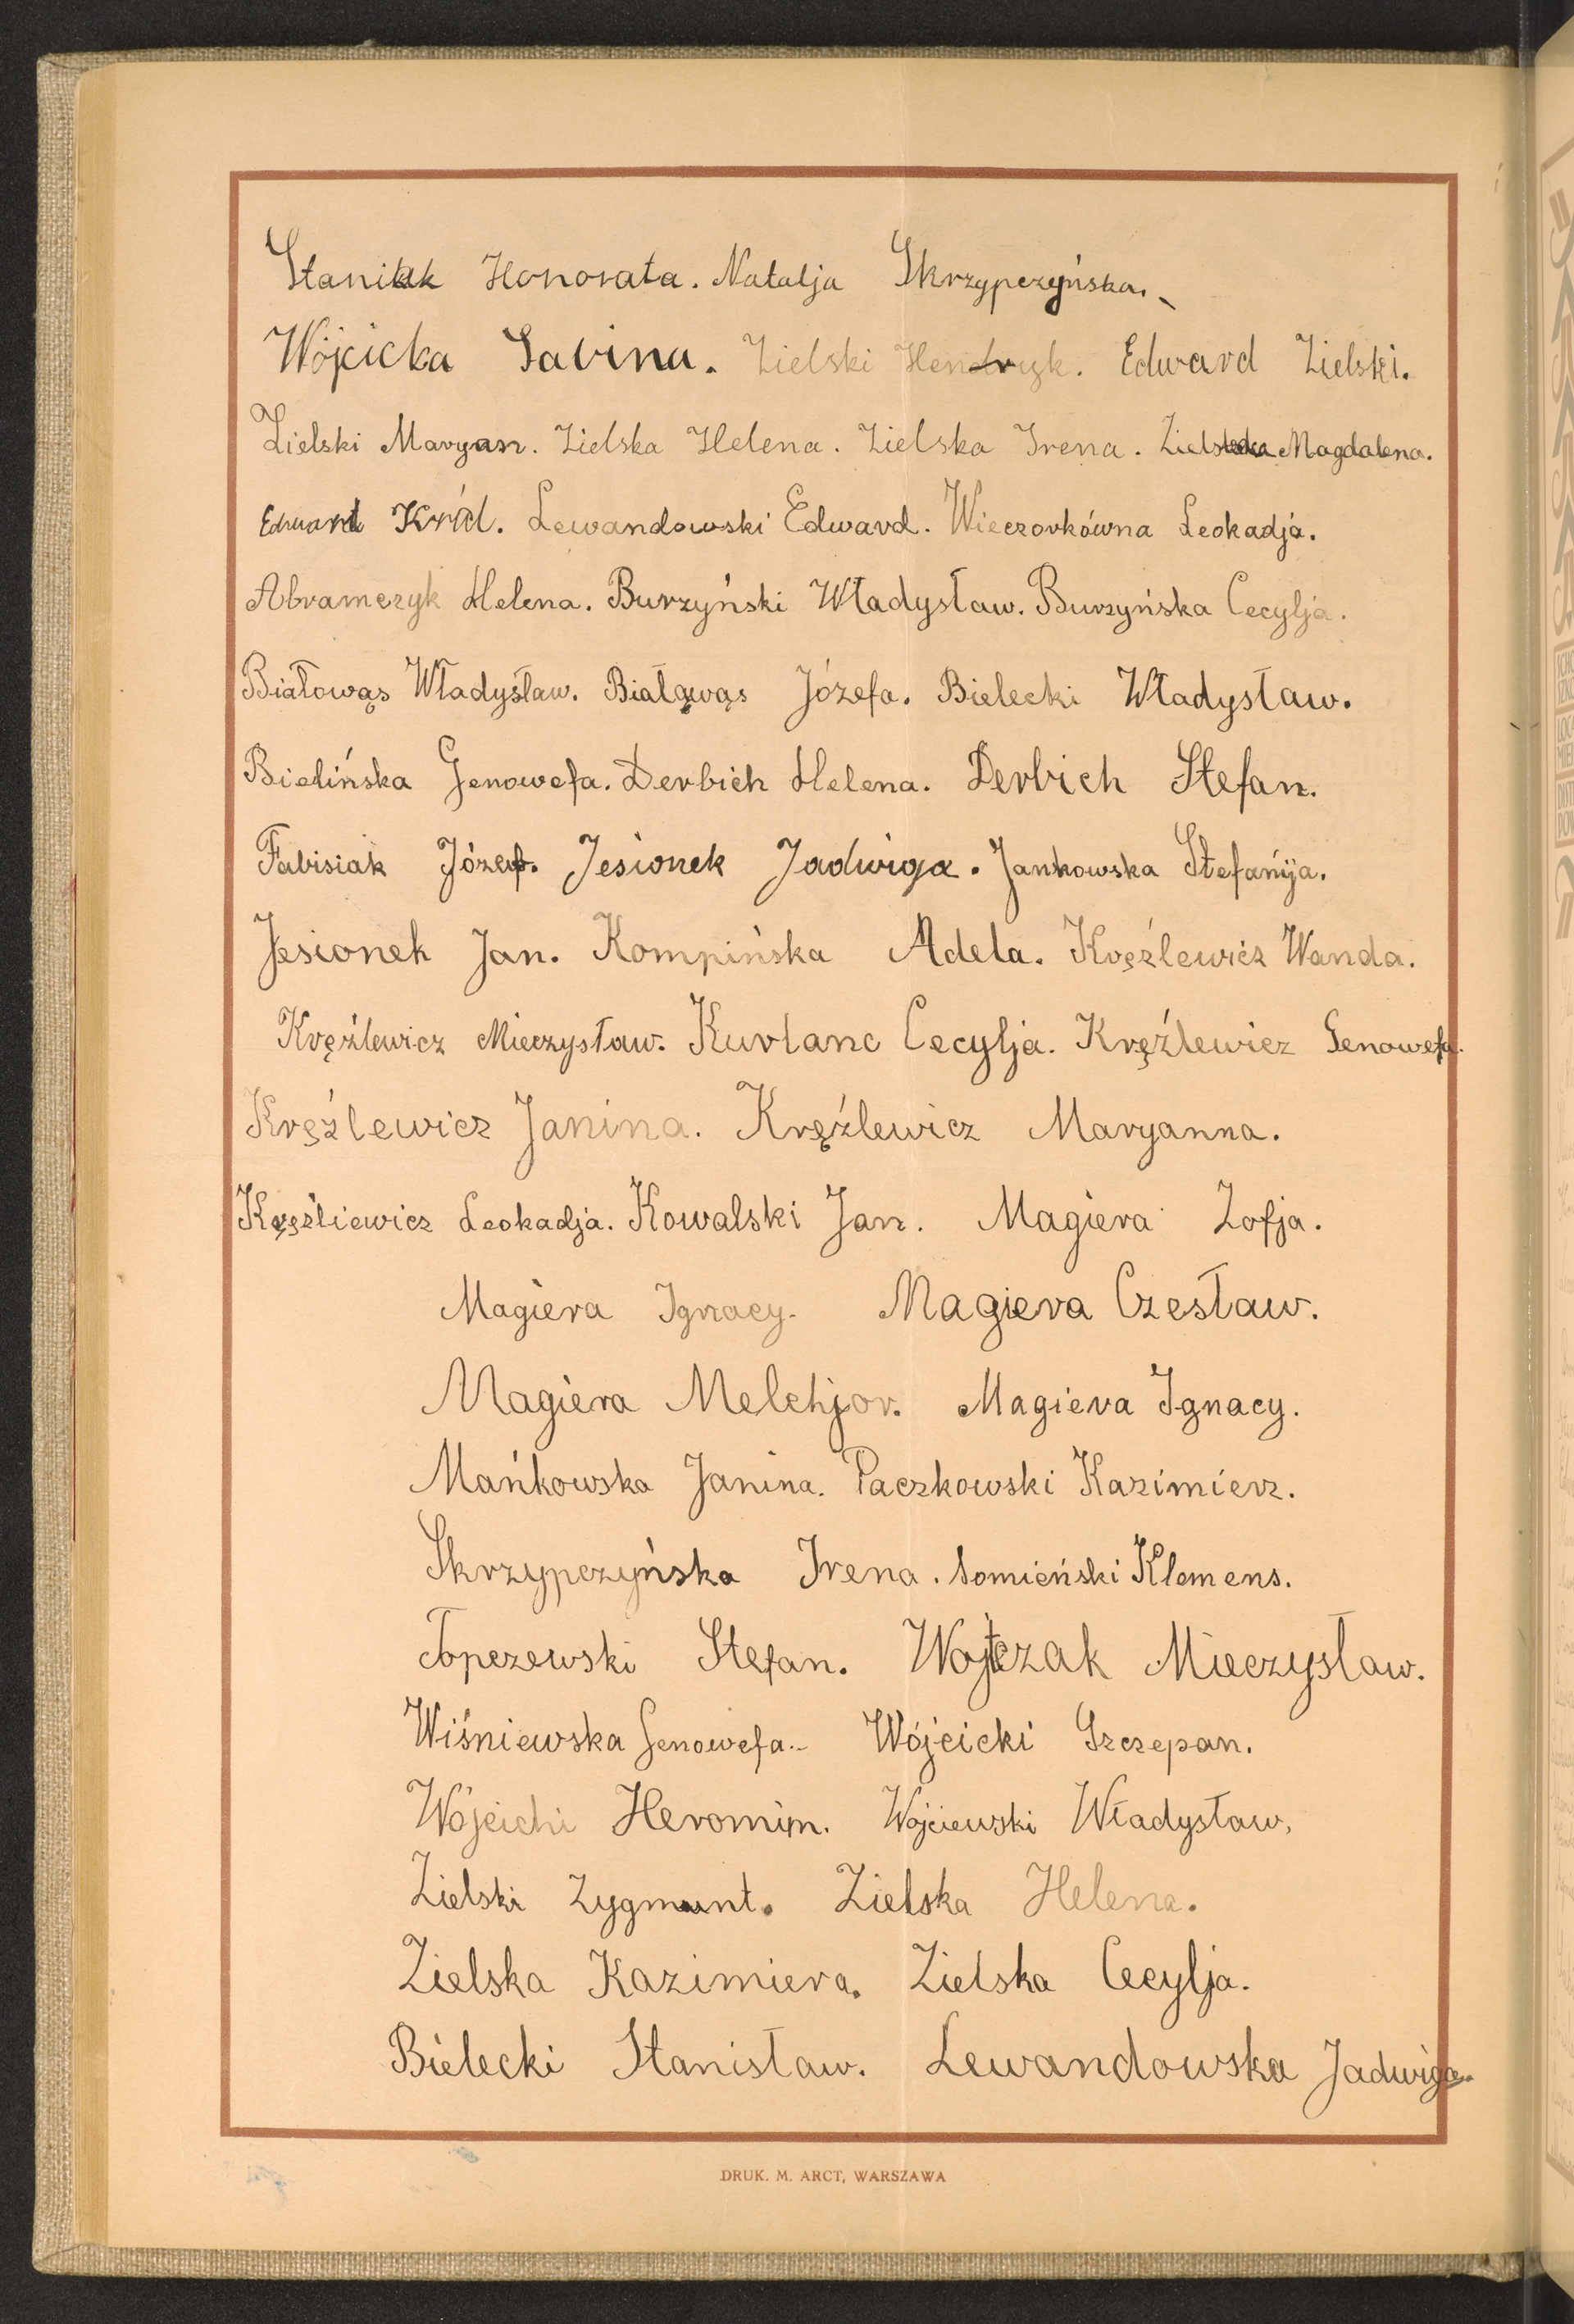 Staniak Honorata. Natalja Skrzypczyńska.
Wójcicka Sabina. Zielski Hendryk. Edward Zielski.
Zielski Maryan. Zielska Helena. Zielska Irena. Zielska Magdalena.
Edward Król. Lewandowski Edward. Wieczorkówna Leokadja.
Abramczyk Helena. Burzyński Władysław. Burzyńska Cecylja.
Białowąs Władysław. Białowąs Józefa. Bielecki Władysław.
Bielińska Genowefa. Derbich Helena. Derbich Stefan.
Fabisiak Józef. Jesionek Jadwiga. Jankowska Stefanija.
Jesionek Jan. Kompińska Adela. Kręźlewicz Wanda.
Kręźlewicz Mieczysław. Kurlanc Cecylja. Kręźlewicz Genowefa.
Kręźlewicz Janina. Kręźlewicz Maryanna.
Kręźliewicz Leokadja. Kowalski Jan. Magiera Zofja.
Magiera Ignacy. Magiera Czesław.
Magiera Melchjor. Magiera Ignacy.
Mańkowska Janina. Paczkowski Kazimierz.
Skrzypczyńska Irena. Somieński Klemens.
Topczewski Stefan. Wojtczak Mieczysław.
Wiśniewska Genowefa. Wójcicki Szczepan.
Wójcicki Heromim. Wojciewski Władysław,
Zielski Zygmunt. Zielska Helena.
Zielska Kazimiera. Zielska Cecylja.
Bielecki Stanisław. Lewandowska Jadwiga.
DRUK. M. ARCT, WARSZAWA